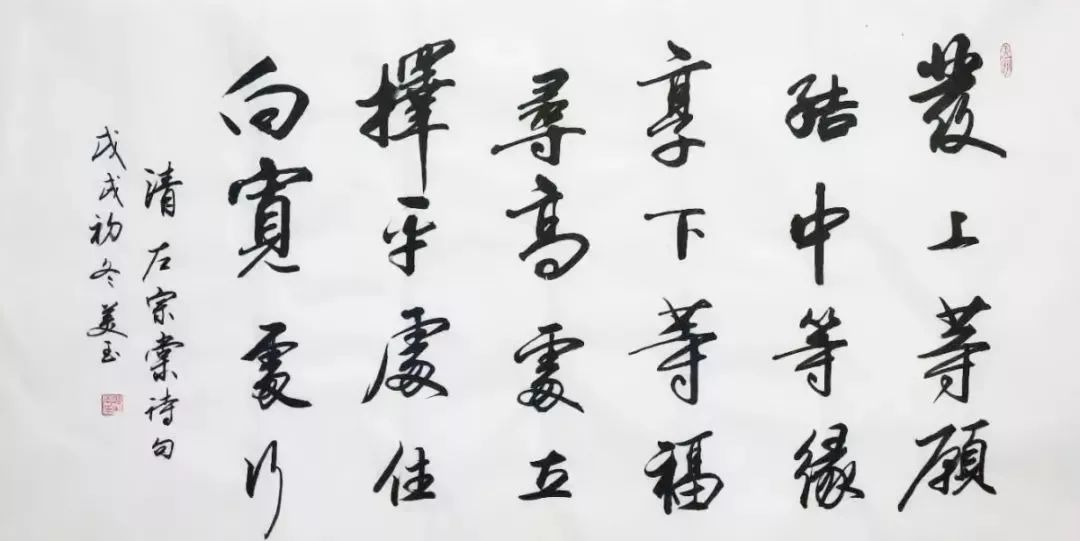 發上等願
結中等緣
享下等福
尋高處立
擇平處住
向寬處行
清左宗棠詩句
戊戌初冬美玉